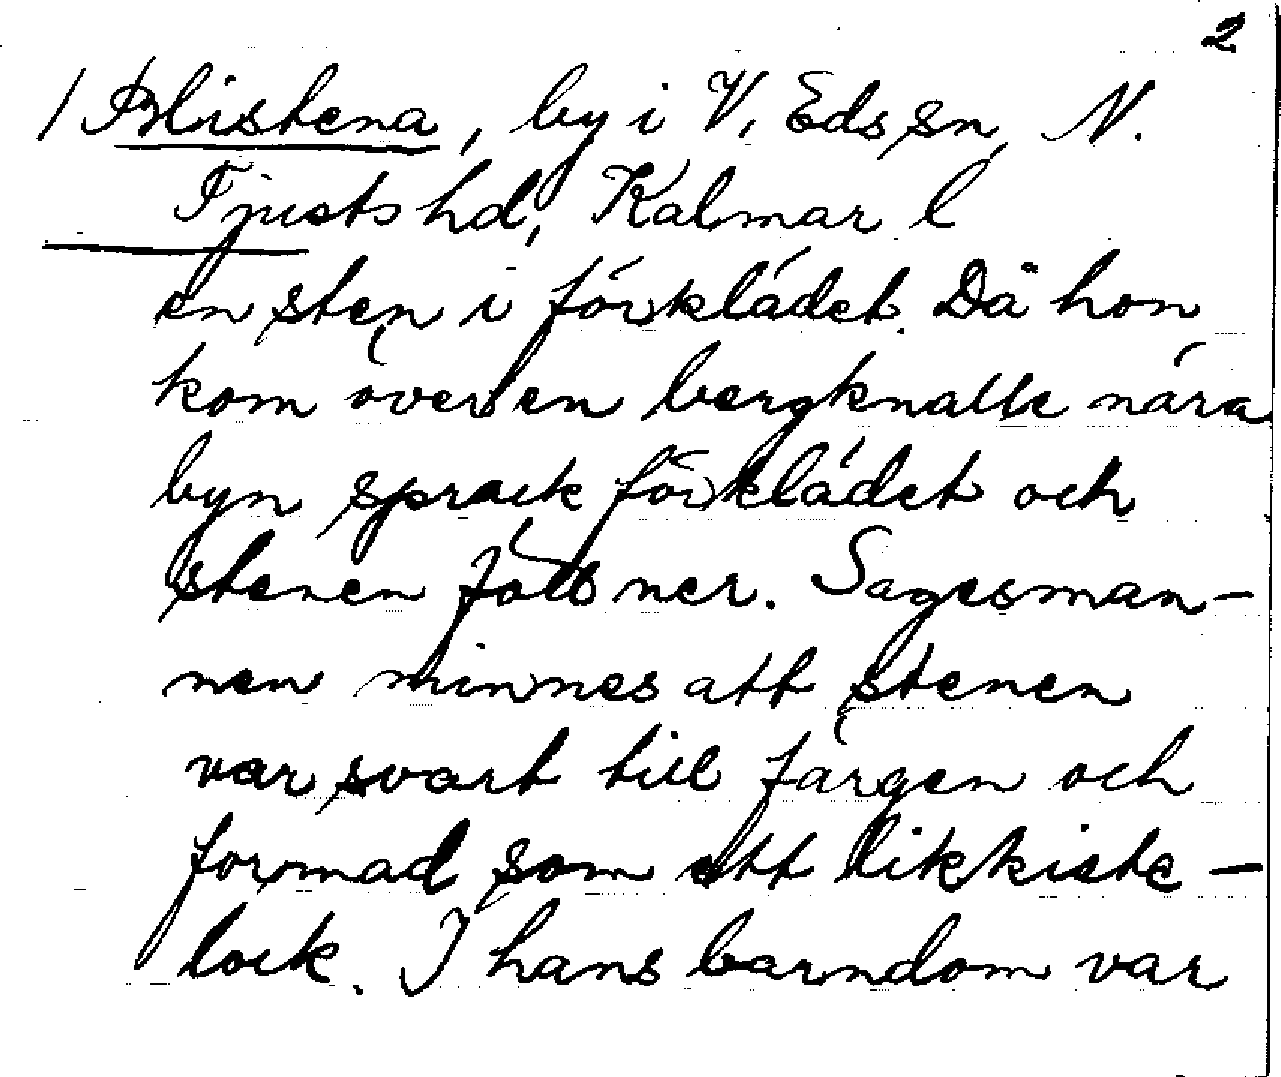 2
/ Blistena, by i V. Eds sn, N.
Tjusts hd, Kalmar l
en sten i förklädet. Då hon
kom över en bergknalle nära
byn sprack förklädet och
stenen föll ner. Sagesman-
nen minnes att stenen
var svart till färgen och
formad som ett likkiste-
lock. I hans barndom var